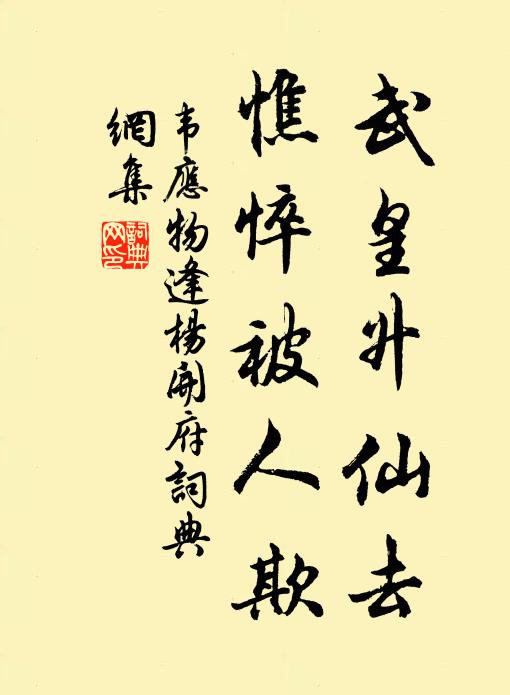 武皇升仙去
憔悴被人欺
韦應物逢楊開府詞典
網集
詞典
网印